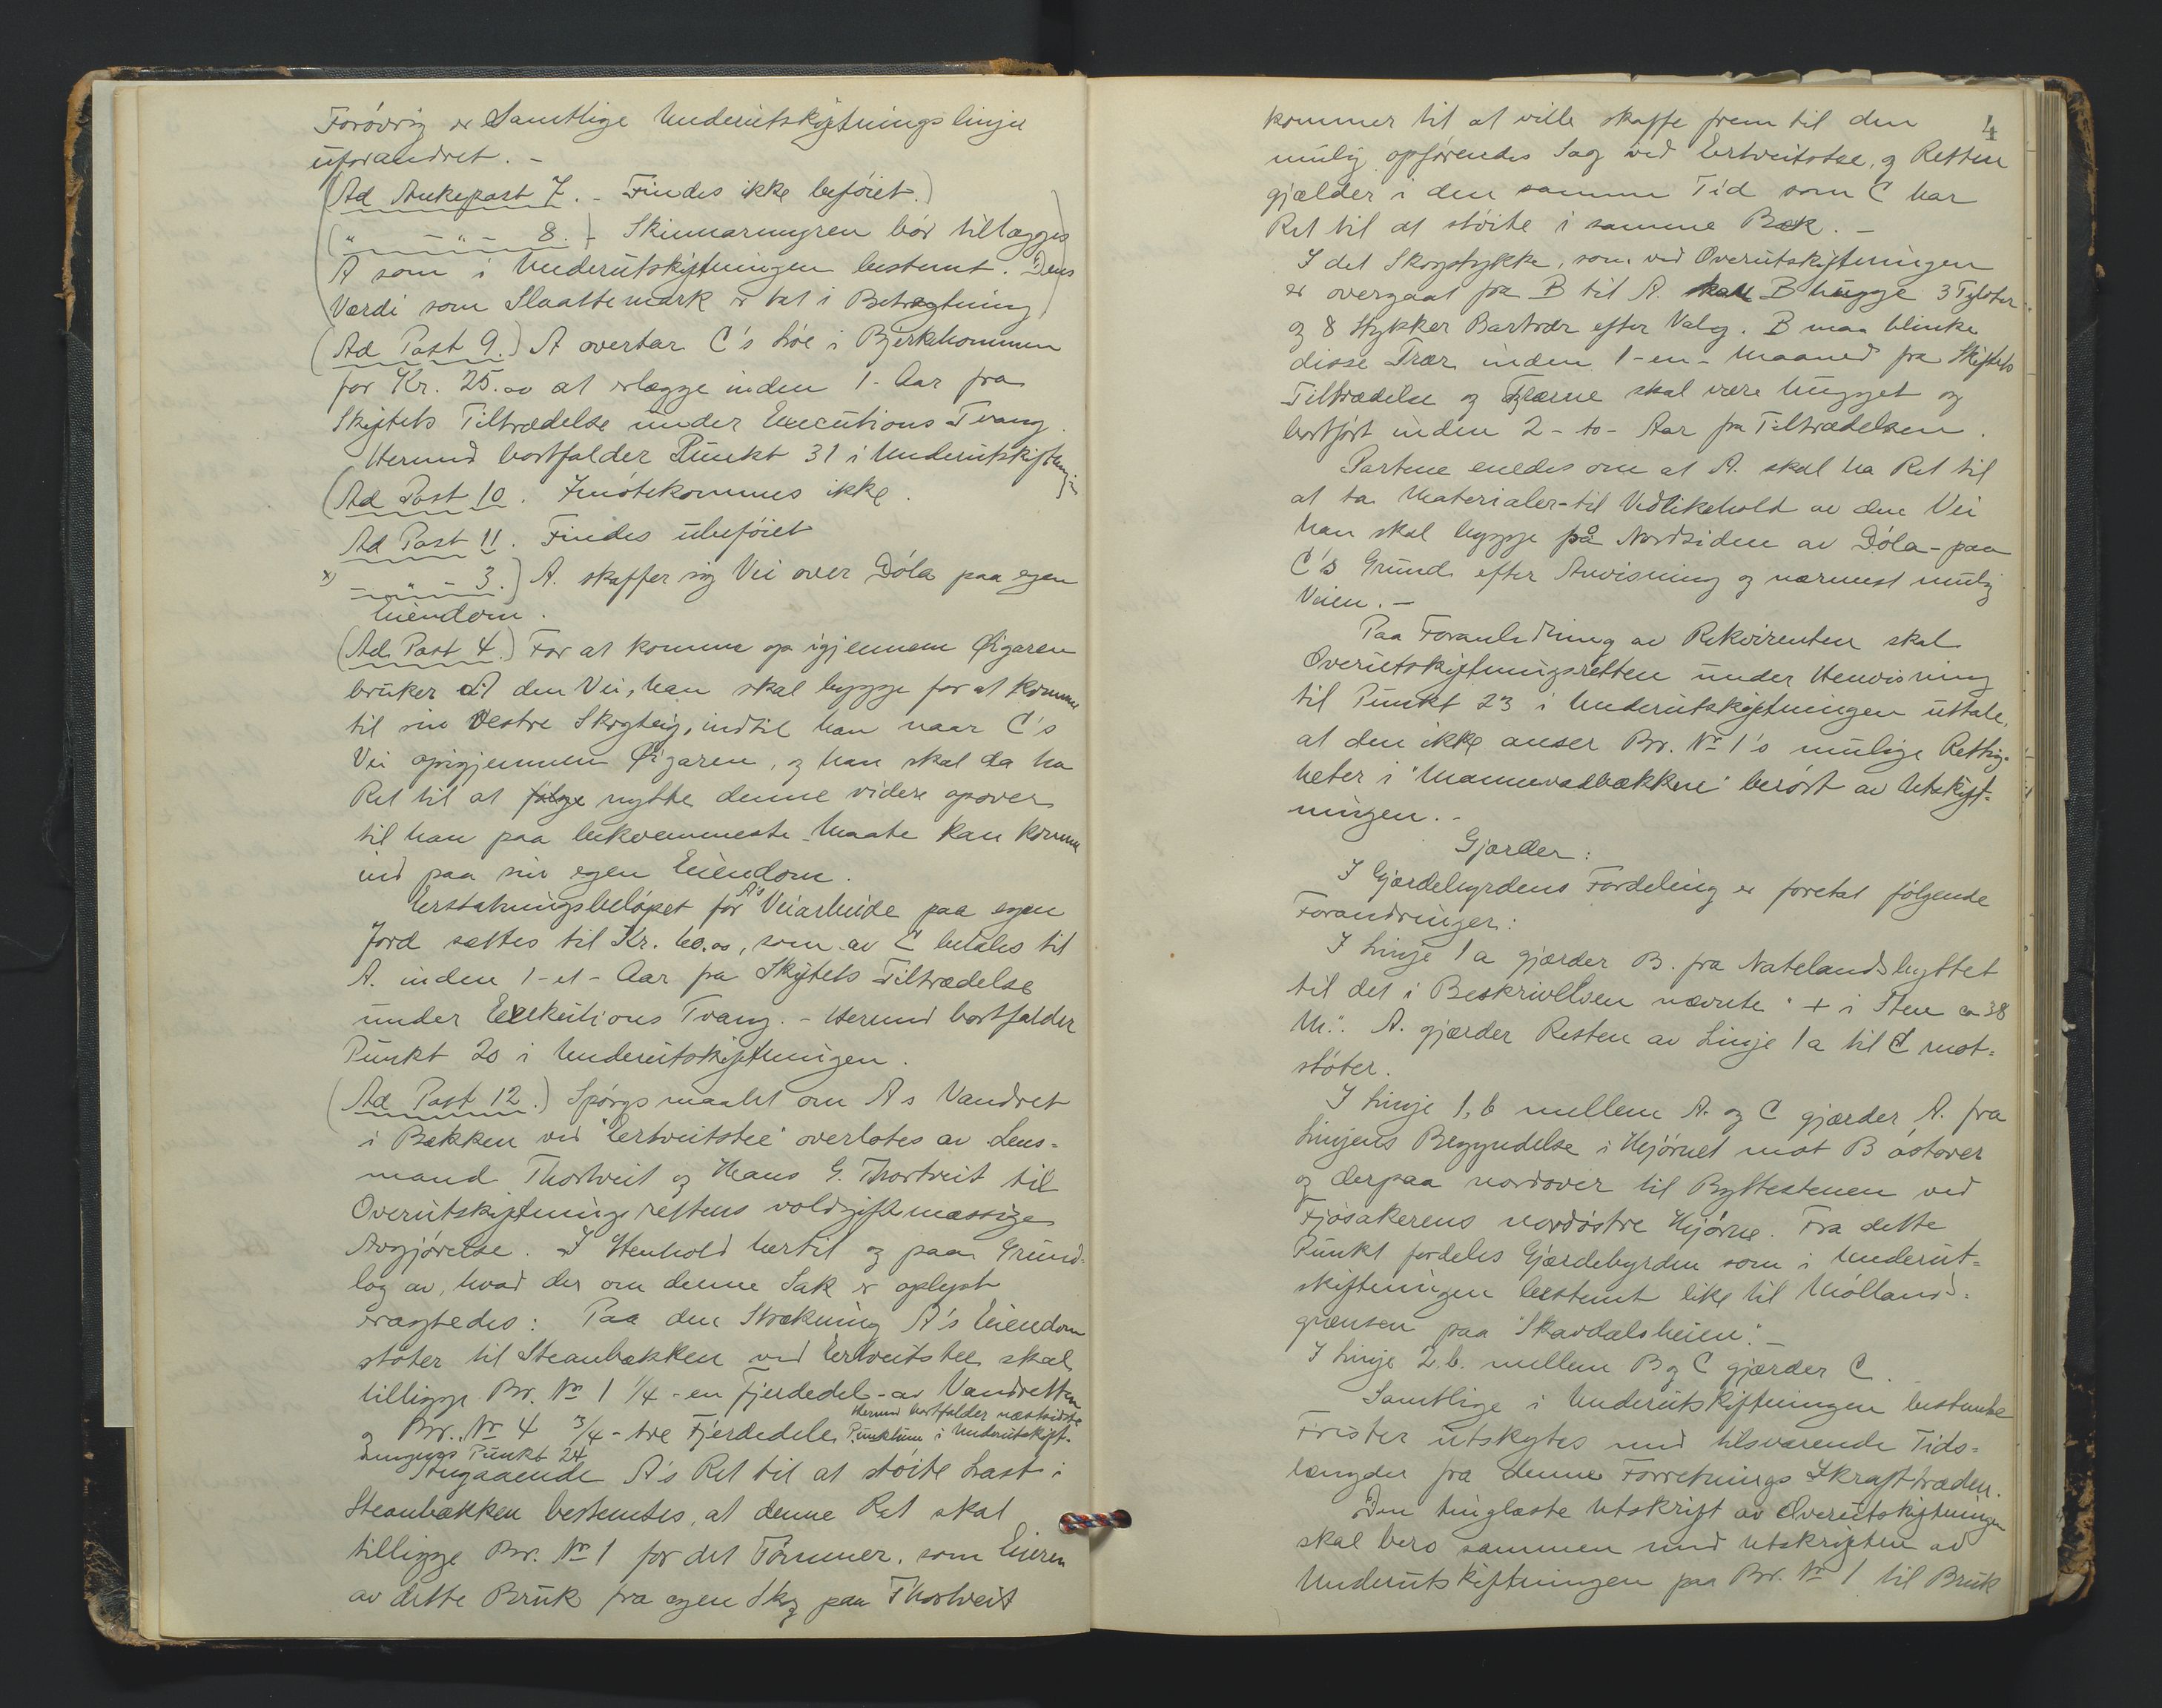 Forøvrig er Samtlige Underutskiftningslinjer
uforandret. -
(Ad Ankepost 7. - Findes ikke beføiet.)
(" - " - 8.) - Skinnarmyren bør tillægges
A som i Underutskiftningen bestemt. Dens
Værdi som Slaattemark er tat i Betragtning)
(Ad Post 9.) A overtar C's Løe i Bjerkehommen
for Kr. 25.00 at erlægge inden 1- Aar fra
Skiftets Tiltrædelse under Executions Tvang.
Hermed bortfalder Punkt 31 i Underutskiftningen
(Ad Post 10. Imøtekommes ikke.
Ad Post 11. Findes ubeføiet
x) - " - 3.) A. skaffer sig Vei over Dóla paa egen
Eiendom.
(Ad Post 4.) For at komme op igjennem Øigaren
bruker A den Vei, han skal bygge for at komme
til sin Vestre Skogteig, indtil han naar C's
Vei opigjennem Øigaren, og han skal da ha
Ret til at følge nytte denne videre opover
til han paa bekvemmeste Maate kan komme
ind paa sin egen Eiendom.
Erstatningsbeløpet for A's Veiarbeide paa egen
Jord sættes til Kr. 60.00, som av C betales til
A. inden 1-et-Aar fra Skiftets Tiltrædelse
under Exekutions Tvang. - Hermed bortfalder
Punkt 20 i Underutskiftningen.
(Ad Post 12.) Spørgsmaalet om A s Vandret
i Bækken ved "Ertveitstee" overlotes av Lens=
mand Thortveit og Hans G. Thortveit til
Overutskiftningsrettens voldgiftmæssige
Avgjørelse. I Henhold hertil og paa Grund=
lag av, hvad der om denne Sak er oplyst
eragtedes: Paa den Strækning A's Eiendom
støter til Steanbækken ved Ertveitstee skal
tilligge Br. Nr 1 1/4 - en Fjerdedel - av Vandretten
og Br. Nr 4 3/4 - tre Fjerdedele. Hermed bortfalder næstsidste
Punktum i Underutskift=
ningens Punkt 24
Angaaende A's Ret til at støite Last i
Steanbækken bestemtes, at denne Ret skal
tilligge Br. Nr 1 for det Tømmer, som Eieren
av dette Bruk fra egen Skog paa Thortveit
4
kommer til at ville skaffe frem til den
mulig opførendes Sag ved Ertveitstee, og Retten
gjælder i den samme Tid som C har
Ret til at støite i samme Bæk. -
I det Skogstykke, som ved Overutskiftningen
er overgaat fra B til A. skal B hugge 3 Tylvter
og 8 Stykker Bartrær efter Valg. B maa blinke
disse Trær inden 1-en- Maaned fra Skiftets
Tiltrædelse og Trærne skal være hugget og
bortført inden 2-to- Aar fra Tiltrædelsen.
Partene enedes om at A. skal ha Ret til
at ta Materialer til Vedlikehold av den Vei
han skal bygge på Nordsiden av Dóla - paa
C's Grund efter Anvisning og nærmest mulig
Veien. -
Paa Foranledning av Rekvirenten skal
Overutskiftningsretten under Henvisning
til Punkt 23 i Underutskiftningen uttale,
at den ikke anser Br. Nr 1's mulige Rettig=
heter i "Mannevadbækken" berørt av Utskift=
ningen. -
Gjærder:
I Gjærdebyrdens Fordeling er foretat følgende
Forandringer:
I Linje 1 a gjærder B. fra Natelandsbyttet
til det i Beskrivelsen nævnte "+ i Sten ca 38
M.". A. gjærder Resten av Linje 1 a til C mot=
støter.
I Linje 1, b mellem A. og C gjærder A. fra
Linjens Begyndelse i Hjørnet mot B østover
og derpaa nordover til Byttestenen ved
Fjøsakerens nordøstre Hjørne. Fra dette
Punkt fordeles Gjærdebyrden som i Underut=
skiftningen bestemt like til Mølland=
grænsen paa "Skavdalsheien". -
I Linje 2.b. mellem B og C gjærder C.
Samtlige i Underutskiftningen bestemte
Frister utskytes med tilsvarende Tids=
længder fra denne Forretnings Ikrafttræden.
Den tinglæste Utskrift av Overutskiftningen
skal bero sammen med Utskriften av
Underutskiftningen paa Br. Nr 1 til Bruk